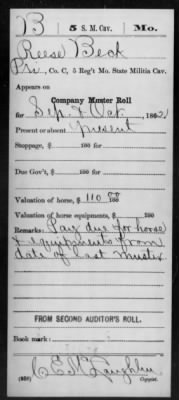 B 5 S. M. Cav. Mo.
Reese Beck
Pri, Co. C, 5 Reg't Mo. State Militia Cav.
Appears on
Company Muster Roll
for Sep. & Oct., 1862.
Present or absent Present
Stoppage, $ 100 for
Due Gov't, $ 100 for
Valuation of horse, $ 110 00/100
Valuation of horse equipments, $ 100
Remarks: Pay due for horse
& equipments from
date of last muster
FROM SECOND AUDITOR'S ROLL.
Book mark:
C E McLaughlin
Copyist.